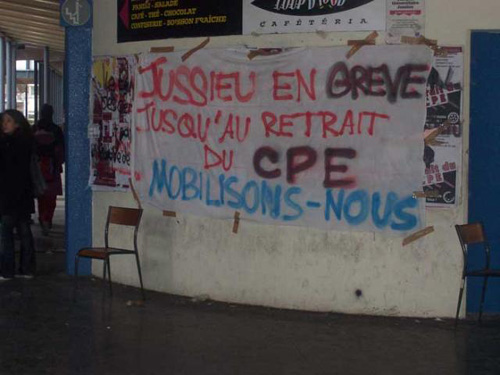 PANINI - SALADE
CAFÉ - THÉ - CHOCOLAT
PATISSERIE - BOISSON FRAÎCHE
LOUP'D FOOD
CAFÉTÉRIA
JUSSIEU EN GREVE
JUSQU'AU RETRAIT
DU CPE
MOBILISONS-NOUS